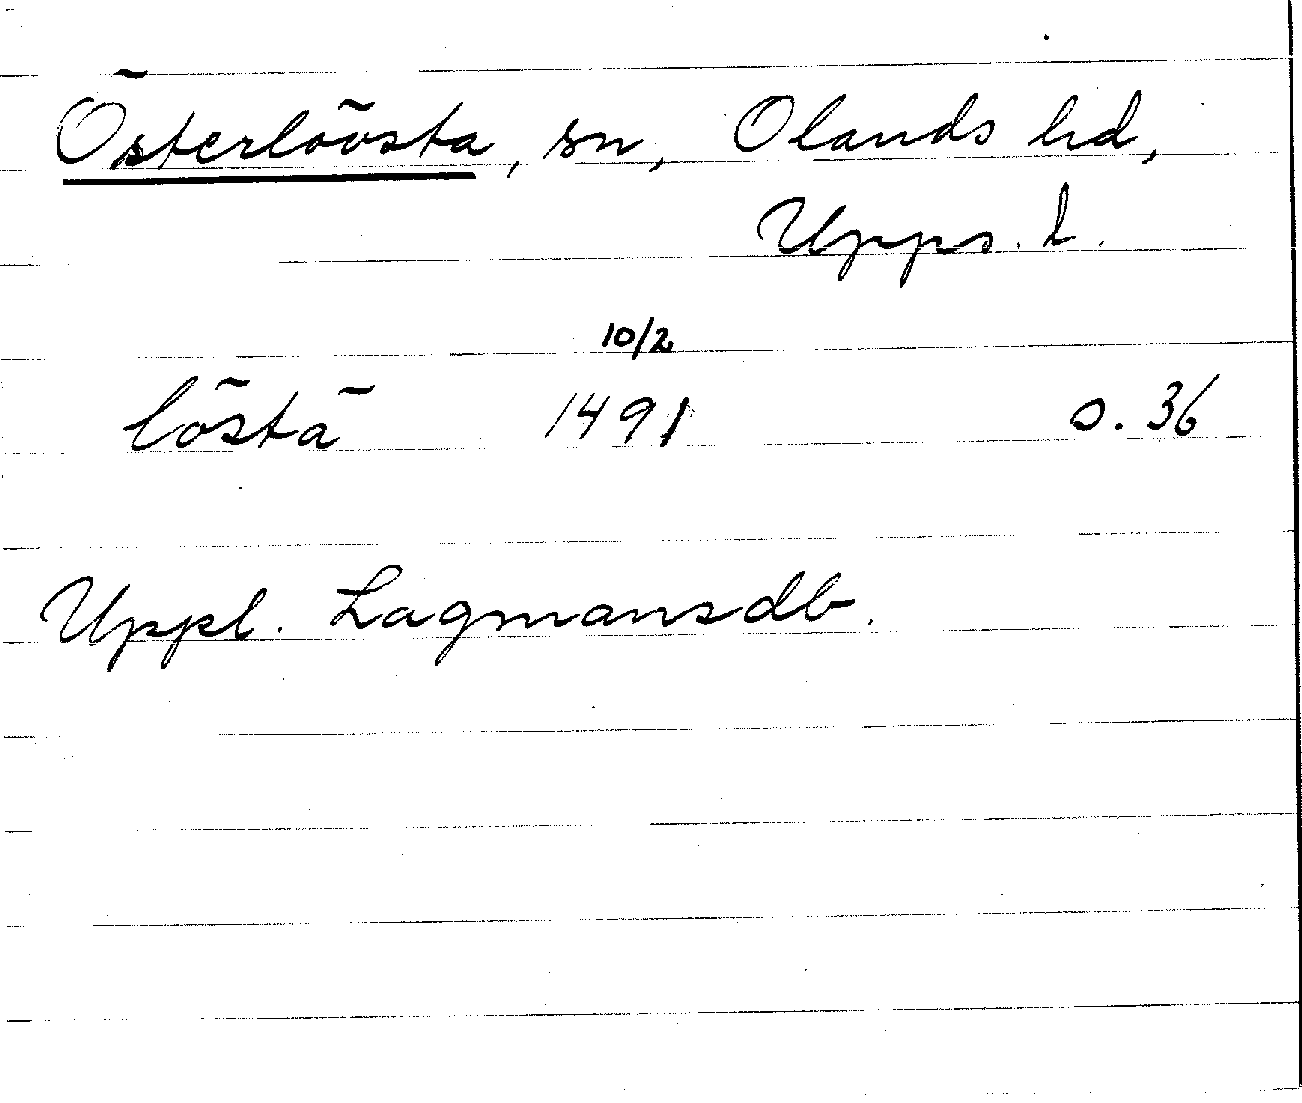 Österlövsta, sn, Olands hd,
Upps. l.
10/2
löstä 1491 s. 36
Uppl. Lagmansdb.